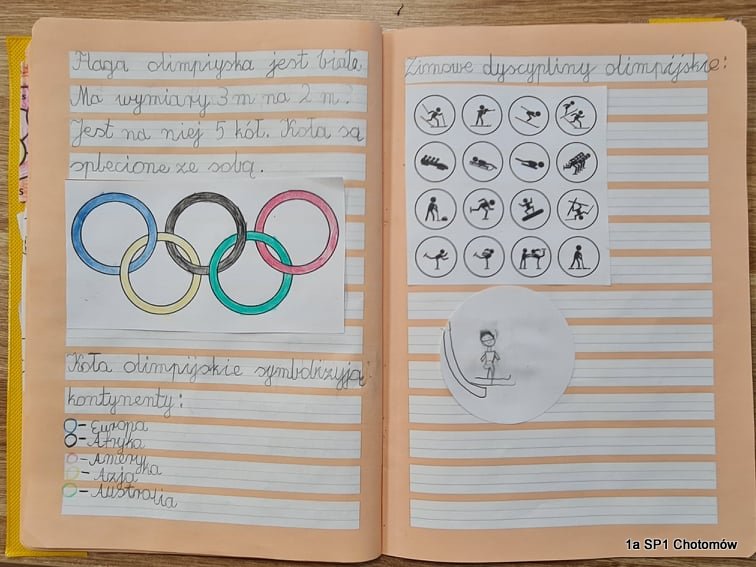 Flaga olimpiyska jest biała
Ma wymiary 3 m na 2 m.
Jest na niej 5 kół. Koła są
splecione ze sobą.
Koła olimpijskie symbolizyją
kontynenty:
- Europa
- Afryka
- Ameryka
- Azja
- Australia
Zimowe dyscypliny olimpijskie:
1a SP1 Chotomów